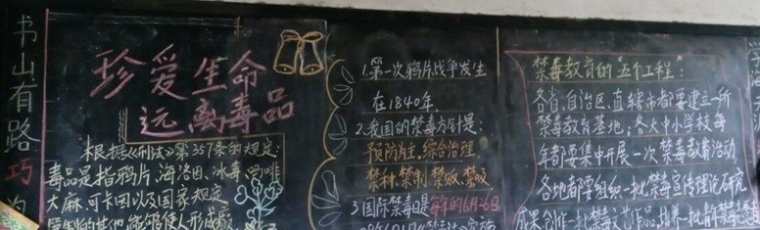 书山有路巧为
珍爱生命
远离毒品
根据《刑法》第357条的规定:
毒品是指鸦片、海洛因、冰毒、吗啡
大麻、可卡因以及国家规定
1.第一次鸦片战争发生
在1840年。
2.我国的禁毒方针是:
预防为主,综合治理
禁种、禁制、禁贩、禁吸
3.国际禁毒日是每年的6月26日
禁毒教育的"五个工程":
各省、自治区、直辖市都要建立一所
禁毒教育基地;各大中小学校每
年都要集中开展一次禁毒教育活动
各地都要组织一批禁毒宣传理论研究
成果创作一批禁毒文艺作品,培养一批
学海无涯